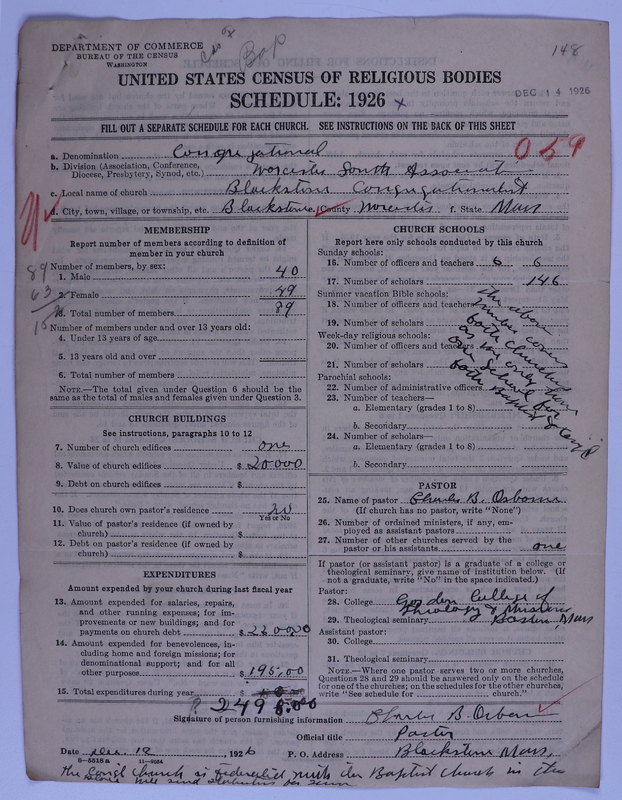 148
DEPARTMENT OF COMMERCE
BUREAU OF THE CENSUS
WASHINGTON
Bap
UNITED STATES CENSUS OF RELIGIOUS BODIES
SCHEDULE: 1926 x
DEC 14 1926
FILL OUT A SEPARATE SCHEDULE FOR EACH CHURCH. SEE INSTRUCTIONS ON THE BACK OF THIS SHEET
059
a. Denomination Congregational
b. Division (Association, Conference, Diocese, Presbytery, Synod, etc.) Worcester South Associat
c. Local name of church Blackstone Congregationalist
d. City, town, village, or township, etc. Blackstone County Worcester f. State Mass
MEMBERSHIP
Report number of members according to definition of member in your church
89
63
Number of members, by sex:
1. Male 40
2. Female 49
3. Total number of members 89
Number of members under and over 13 years old:
4. Under 13 years of age
5. 13 years old and over
6. Total number of members
NOTE.—The total given under Question 6 should be the
same as the total of males and females given under Question 3.
CHURCH BUILDINGS
See instructions, paragraphs 10 to 12
7. Number of church edifices one
8. Value of church edifices $ 20000
9. Debt on church edifices $
10. Does church own pastor's residence no
Yes or No
11. Value of pastor's residence (if owned by
church) $
12. Debt on pastor's residence (if owned by
church) $
EXPENDITURES
Amount expended by your church during last fiscal year
13. Amount expended for salaries, repairs,
and other running expenses; for im-
provements or new buildings; and for
payments on church debt $
14. Amount expended for benevolences, in-
cluding home and foreign missions; for
denominational support; and for all
other purposes $ 195.00
15. Total expenditures during year $
CHURCH SCHOOLS
Report here only schools conducted by this church
Sunday schools:
16. Number of officers and teachers 6 6
17. Number of scholars 146
Summer vacation Bible schools:
18. Number of officers and teachers
19. Number of scholars
Week-day religious schools:
20. Number of officers and teachers
21. Number of scholars
Parochial schools:
22. Number of administrative officers
23. Number of teachers—
a. Elementary (grades 1 to 8)
b. Secondary
24. Number of scholars—
a. Elementary (grades 1 to 8)
b. Secondary
the above
number covers
both churches
as we only have
one School for
both
PASTOR
25. Name of pastor Charles B. Osborne
(If church has no pastor, write "None")
26. Number of ordained ministers, if any, em-
ployed as assistant pastors
27. Number of other churches served by the
pastor or his assistants one
If pastor (or assistant pastor) is a graduate of a college or
theological seminary, give name of institution below. (If
not a graduate, write "No" in the space indicated.)
Pastor:
28. College Gordon College of
Theology & Missions
29. Theological seminary Boston, Mass
Assistant pastor:
30. College
31. Theological seminary
NOTE.—Where one pastor serves two or more churches,
Questions 28 and 29 should be answered only on the schedule
for one of the churches; on the schedules for the other churches,
write "See schedule for church."
Signature of person furnishing information Charles B. Osborne
Official title Pastor
Date Dec. 12, 1926 P. O. Address Blackstone Mass.
6—5518 a 11—9054
the Cong'l church is Federated with the Baptist church in the